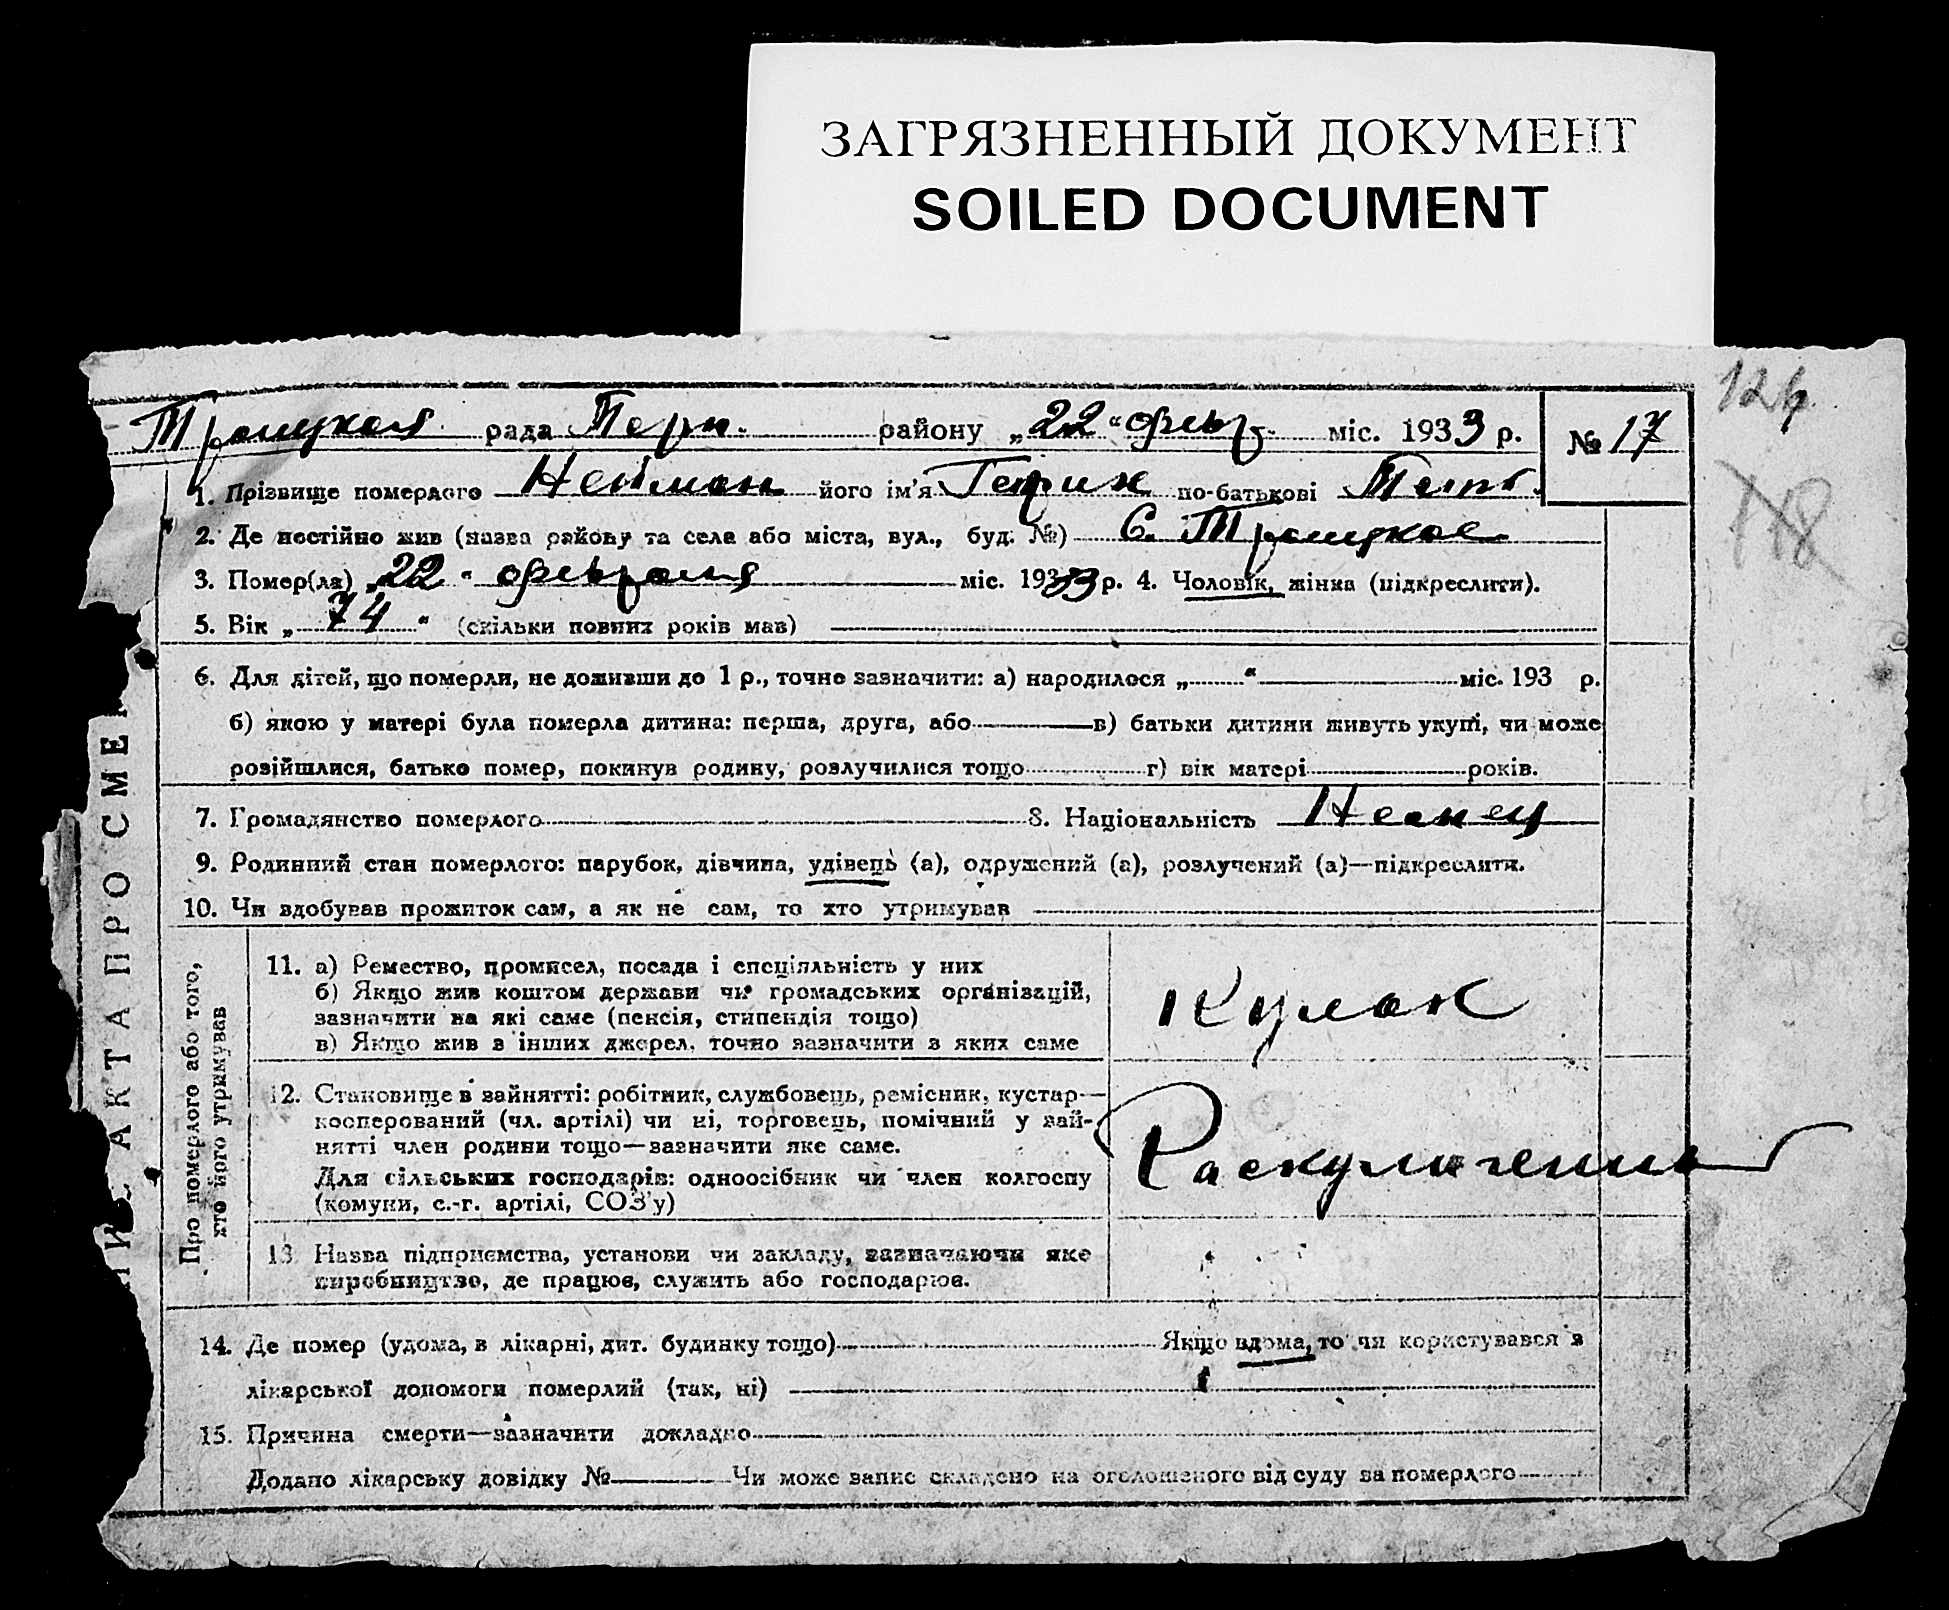 ЗАГРЯЗНЕННЫЙ ДОКУМЕНТ
SOILED DOCUMENT
126
118
Троицкая рада Терн. району „22“ февр. міс. 1933 р. № 17
1. Прізвище померлого Нейман його ім'я Генрих по-батькові
2. Де постійно жив (назва району та села або міста, вул., буд. №) С. Троицкое
3. Помер(ла) „22“ февраля міс. 1933 р. 4. Чоловік, жінка (підкреслити).
5. Вік „74“ (скільки повних років мав)
6. Для дітей, що померли, не доживши до 1 р., точно зазначити: а) народилося „ “ міс. 193 р.
б) якою у матері була померла дитина: перша, друга, або в) батьки дитини живуть укупі, чи може
розійшлися, батько помер, покинув родину, розлучилися тощо г) вік матері років.
7. Громадянство померлого 8. Національність Немец
9. Родинний стан померлого: парубок, дівчина, удівець (а), одружений (а), розлучений (а)—підкреслити.
10. Чи здобував прожиток сам, а як не сам, то хто утримував
Про померлого або того,
хто його утримував
11. а) Ремество, промисел, посада і спеціяльність у них
б) Якщо жив коштом держави чи громадських організацій,
зазначити на які саме (пенсія, стипендія тощо)
в) Якщо жив з інших джерел, точно зазначити з яких саме
Кулак
12. Становище в зайнятті: робітник, службовець, ремісник, кустар—
кооперований (чл. артілі) чи ні, торговець, помічний у зай-
нятті член родини тощо—зазначити яке саме.
Для сільських господарів: одноосібник чи член колгоспу
(комуни, с.-г. артілі, СОЗ'у)
Раскулаченный
13. Назва підприємства, установи чи закладу, зазначаючи яке
виробництво, де працює, служить або господарює.
14. Де помер (удома, в лікарні, дит. будинку тощо) Якщо вдома, то чи користувався з
лікарської допомоги померлий (так, ні)
15. Причина смерти—зазначити докладно
Додано лікарську довідку № Чи може запис складено на оголошеного від суду за померлого
АКТА ПРО СМЕ